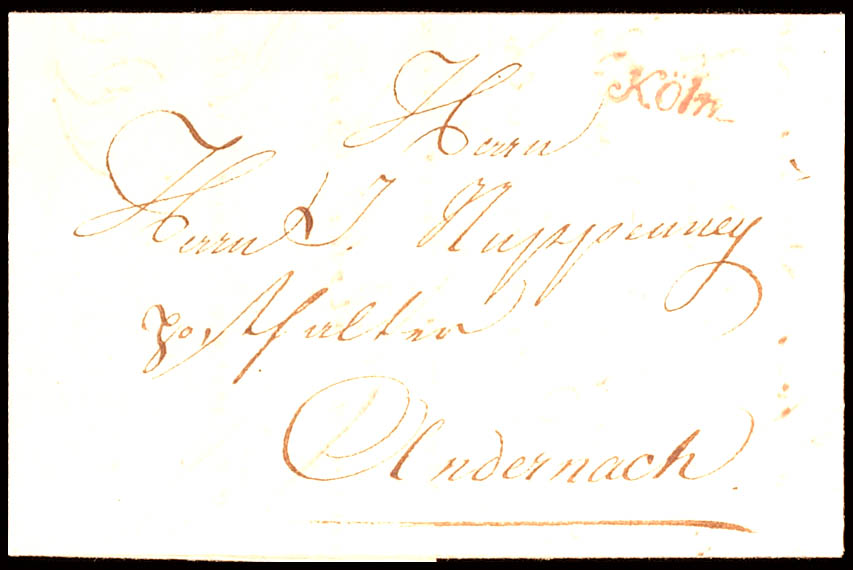 Köln
Herrn
Herrn J. Nuppenney
posthalter
Andernach